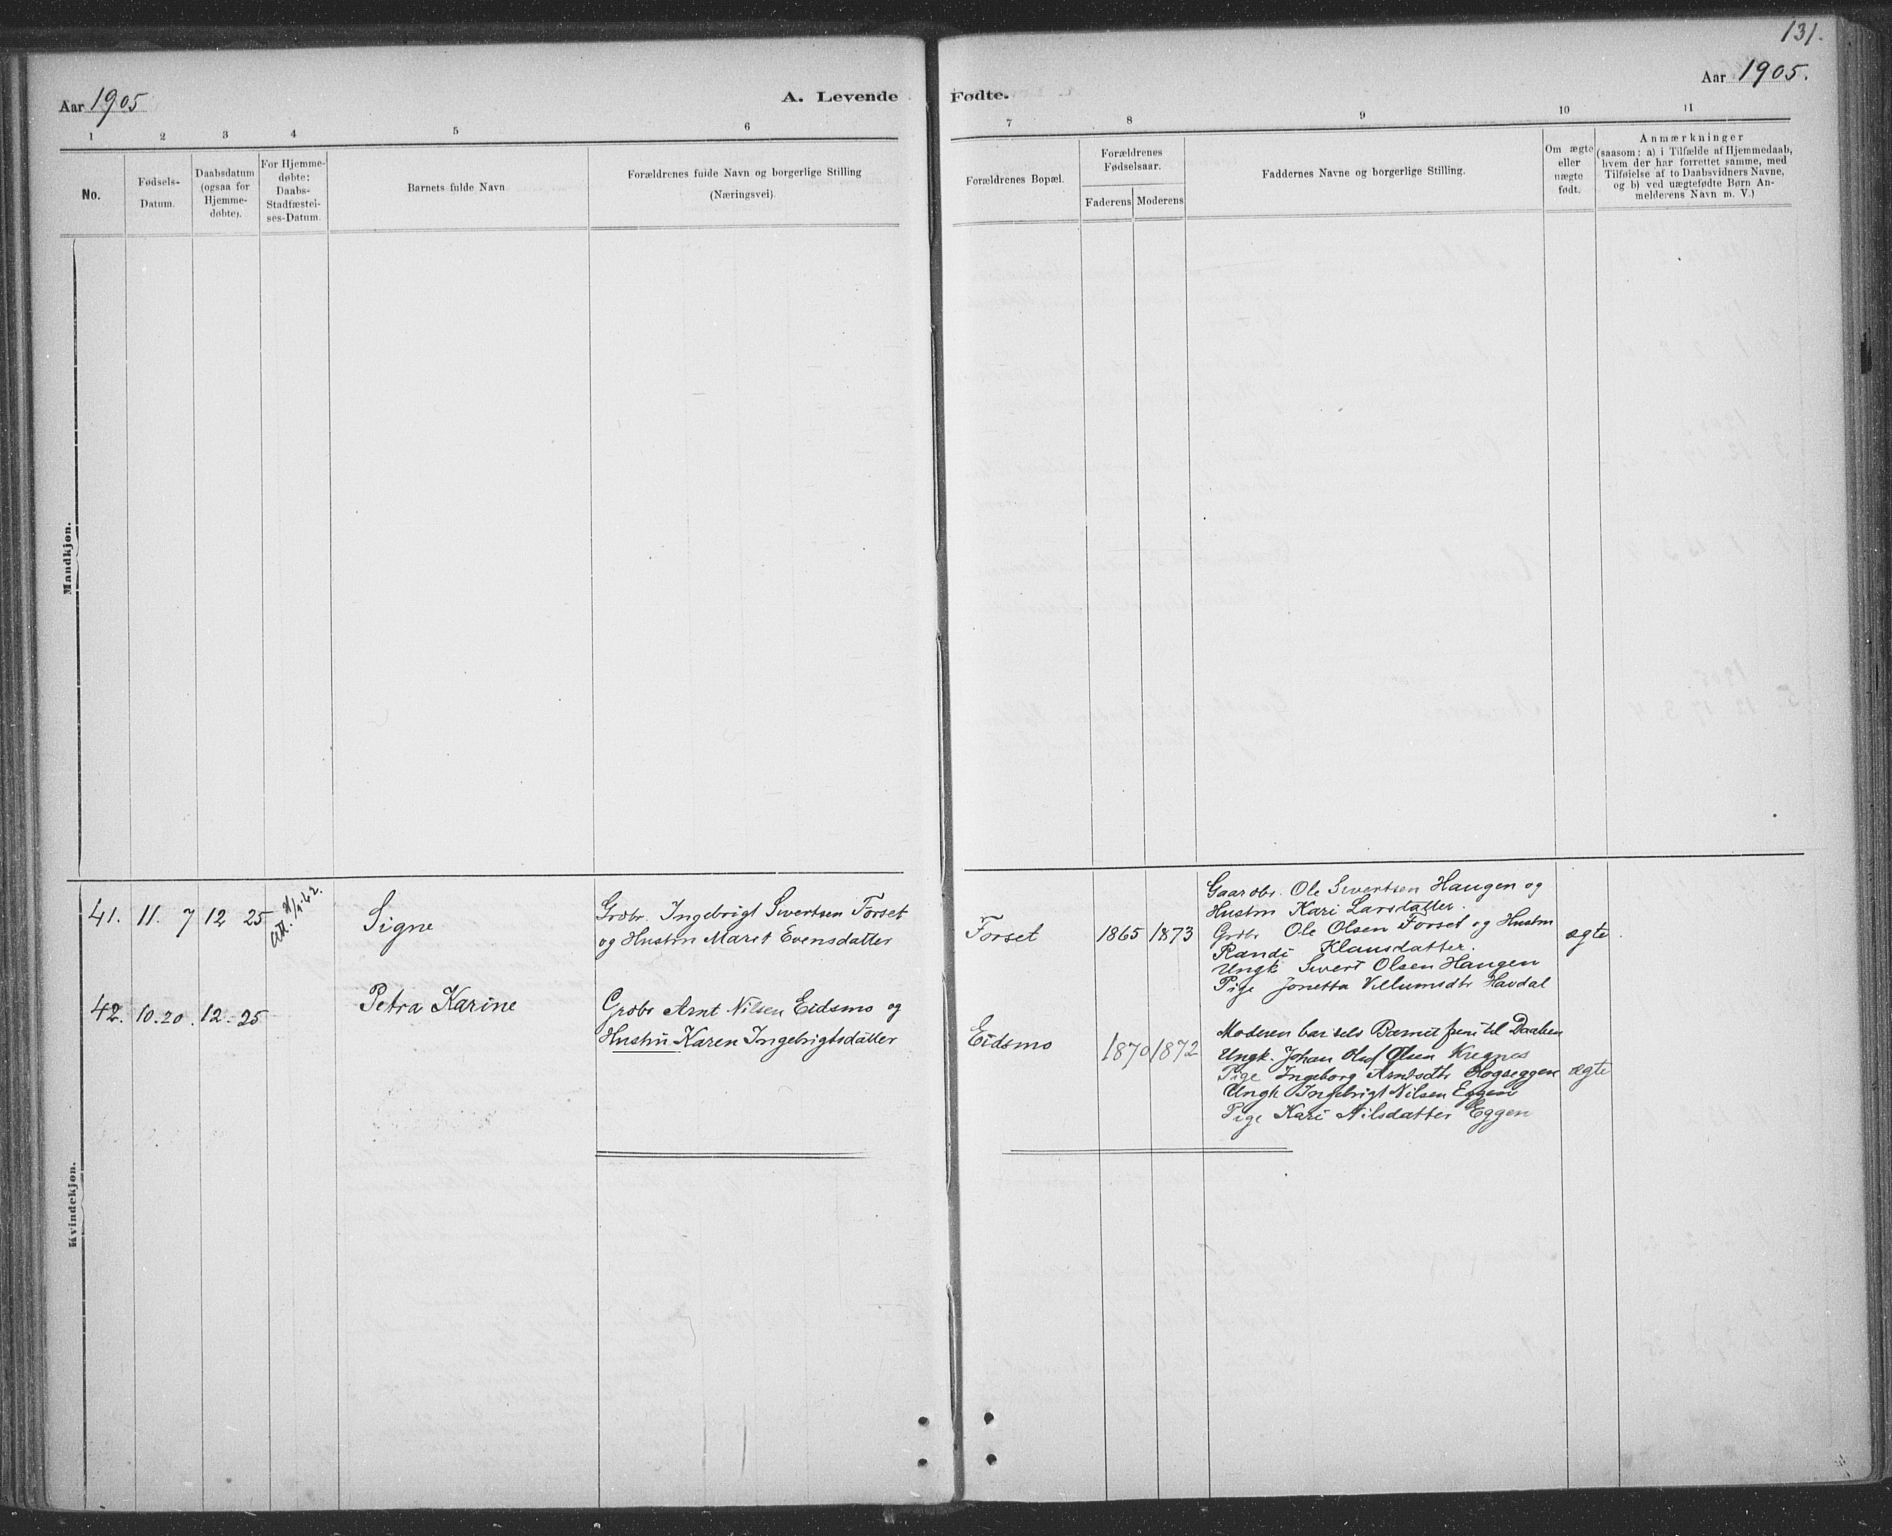 131.
Aar 1905
A. Levende
Fødte.
Aar 1905.
1 2 3 4 5 6
7 8 9 10 11
No.
Fødsels-
Datum.
Daabsdatum
(ogsaa for
Hjemme-
døbte).
For Hjemme-
døbte;
Daabs-
Stadfæstel-
ses-Datum.
Barnets fulde Navn
Forældrenes fulde Navn og borgerlige Stilling
(Næringsvei).
Forældrenes Bopæl.
Forældrenes
Fødselsaar.
Faderens Moderens
Faddernes Navne og borgerlige Stilling.
Om ægte
eller
uægte
født.
Anmærkninger
(saasom: a) i Tilfælde af Hjemmedaab,
hvem der har forrettet samme, med
Tilføielse af to Daabsvidners Navne,
og b) ved uægtefødte Børn An-
melderens Navn m. V.)
Mandkjøn.
41. 11. 7 12 25
Att.
Signe
Grdbr. Ingebrigt Sivertsen Forset
og Hustru Maret Evensdatter
Forset
1865 1873
Gaardbr. Ole Sivertsen Haugen og
Hustru Kari Larsdatter.
Grdbr Ole Olsen Forset og Hustru
Randi Klausdatter.
Ungk. Sivert Olsen Haugen
Pige Jonetta Villumsdtr Havdal
ægte.
42. 10. 20. 12. 25
Petra Karine
Grdbr Arnt Nilsen Eidsmo og
Hustru Karen Ingebrigtsdatter
Eidsmo
1870 1872
Moderen bar sels Barnet frem til Daaben
Ungk. Johan Oluf Olsen Kregnes
Pige Ingeborg Arntsdtr Hogseggen
Ungk Ingebrigt Nilsen Eggen
Pige Kari Nilsdatter Eggen
ægte
Kvindekjøn.